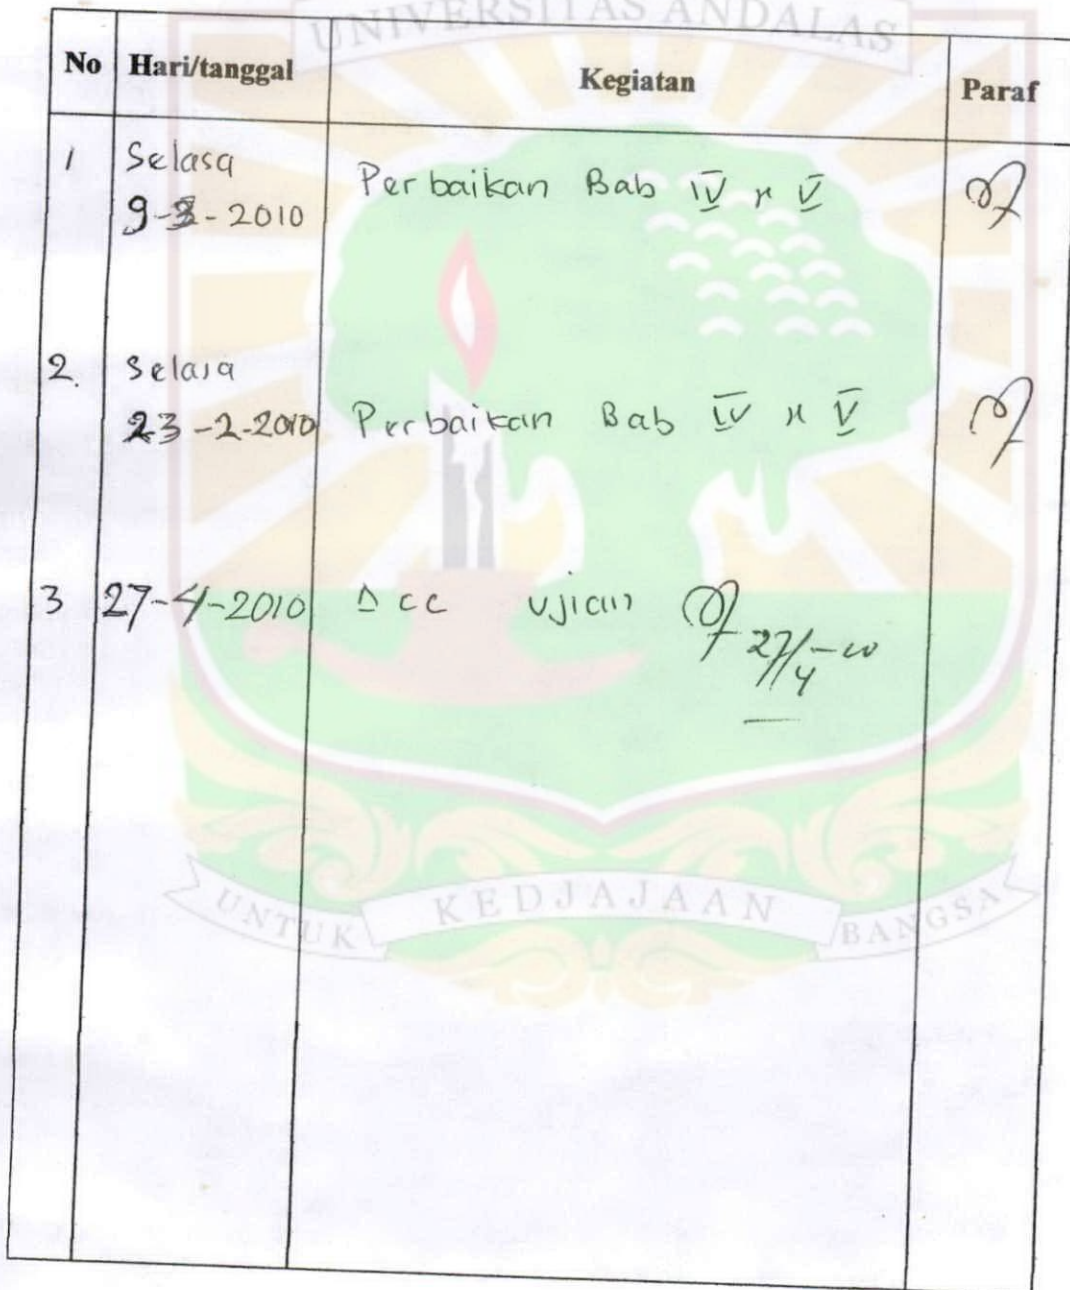 UNIVERSITAS ANDALAS
No Hari/tanggal Kegiatan Paraf
1 Selasa Perbaikan Bab IV & V
9- -2010
2. Selasa
23-2-2010 Perbaikan Bab IV & V
3 27-4-2010 Acc ujian
27/4-10
UNTUK KEDJAJAAN BANGSA